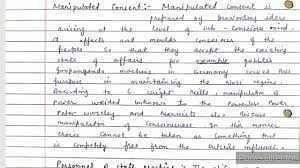 Manipulated Consent:- Manipulated Consent is
prepared by preventing ideas
arising at the level of sub-conscious mind.
it effects and moulds conscious of the
people so that they accept the existing
state of affairs for example gobbles
propaganda machine in Germany served this
purpose in maintaining the slave regime
According to C. Wright Neills, manipulation is
power weilded unknown to the powerless Power
Peter worsley and Marxists also discuss
manipulation of Consciousness. In this manner
choice Cannot be taken as something that
is completely free from the outside influence.
Personnel &amp; state machine